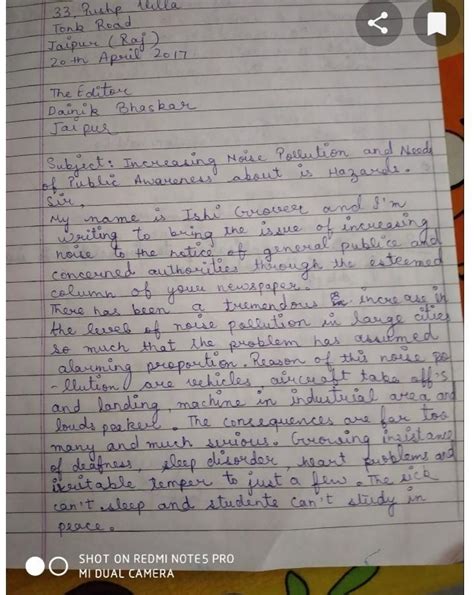 33, Pushp Villa
Tonk Road
Jaipur (Raj)
20th April 2017
The Editor
Dainik Bhaskar
Jaipur
Subject: Increasing Noise Pollution and Need
of Public Awareness about is Hazards.
Sir,
My name is Ishi Grover and I'm
writing to bring the issue of increasing
noise to the notice of general publice and
concerned authorities through the esteemed
column of your newspaper.
There has been a tremendous increase in
the levels of noise pollution in large cities
so much that the problem has assumed
alarming proportion. Reason of this noise po
-llution are vehicles, aircraft take off's
and landing, machine in industrial area and
louds peaker. The consequences are far too
many and much serious. Growsing insistance
of deafness, sleep disorder, heart problems and
irritable temper to just a few. The sick
can't sleep and students can't study in
peace.
SHOT ON REDMI NOTE5 PRO
MI DUAL CAMERA